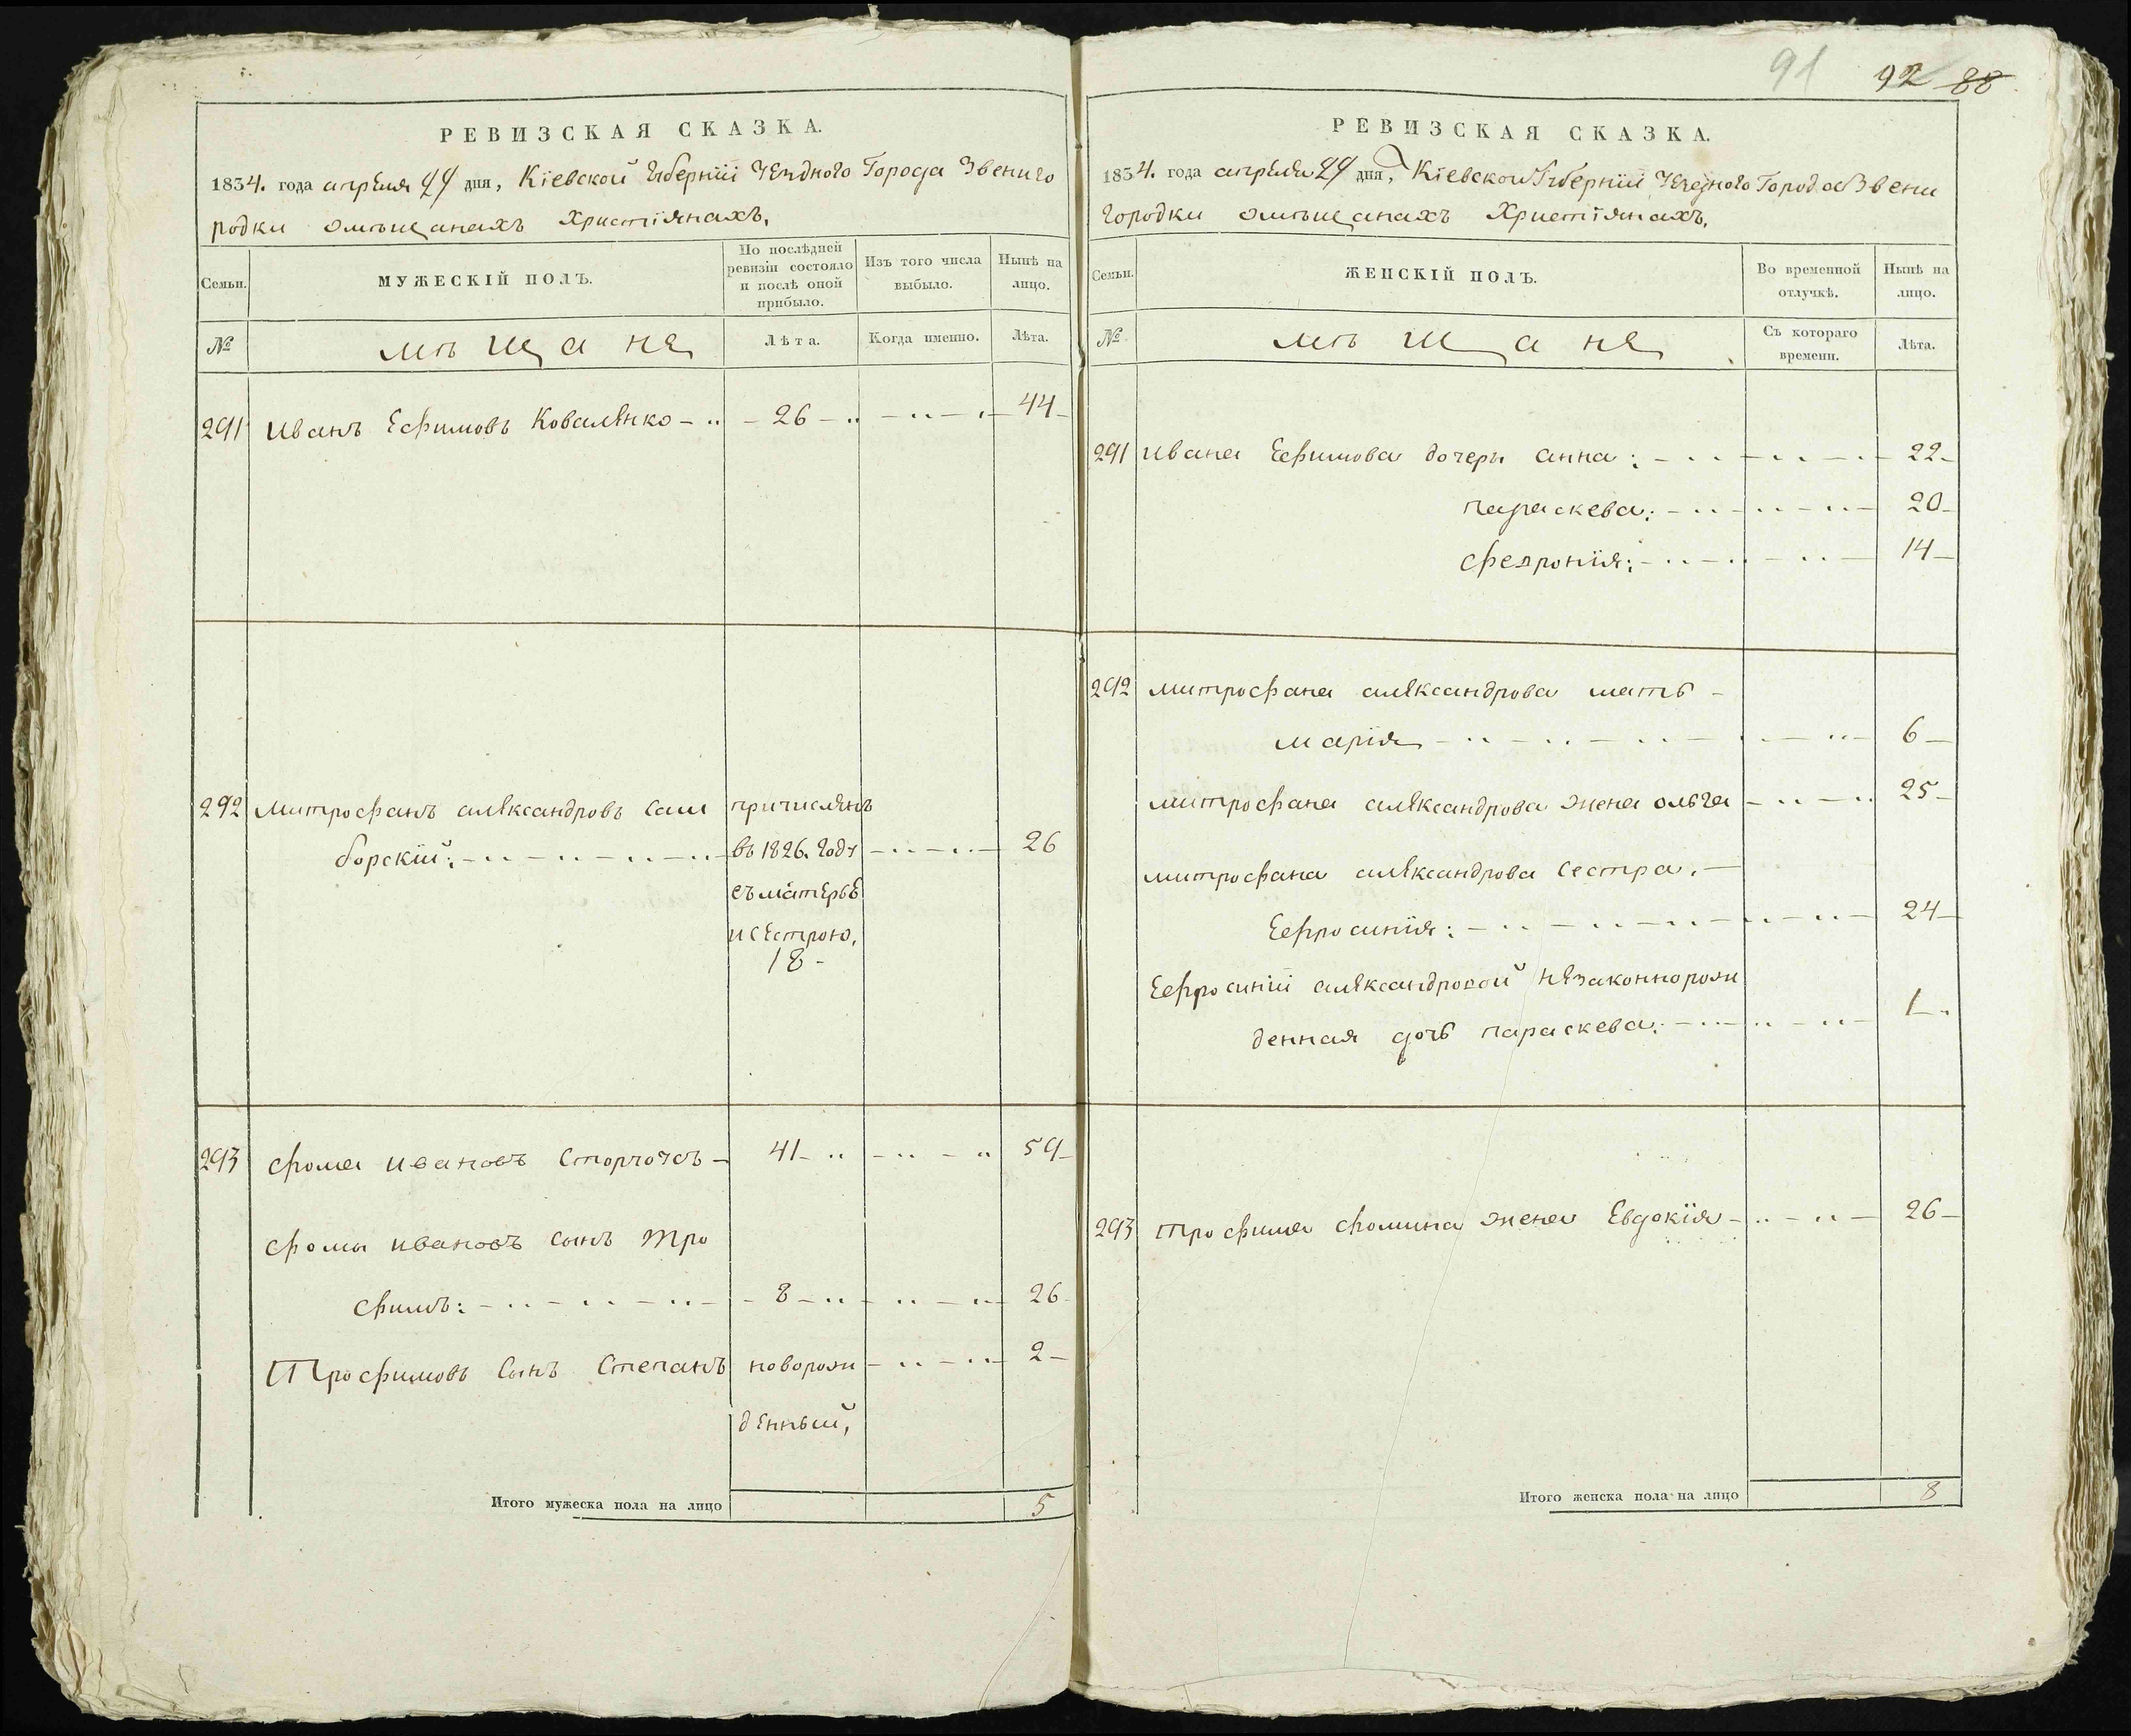 91 92 88
РЕВИЗСКАЯ СКАЗКА.
1834. года апреля 29 дня, Кіевской Губерніи Уездного Города Звениго
родки омѣщанахъ Християнахъ,
Семьи. МУЖЕСКІЙ ПОЛЪ. По послѣдней ревизіи состояло и послѣ оной прибыло. Изъ того числа выбыло. Нынѣ на лицо.
№ мѣщане Лѣта. Когда именно. Лѣта.
291 Иванъ Ефимовъ Коваленко 26 44
292 Митрофанъ александровъ Сам причисленъ
борскій: въ 1826. году 26
съ матерье
и сестрою,
18
293 фома ивановъ 41 59
фомы ивановъ сынъ Тро
фимъ: 8 26
Трофимовъ Сынъ Степанъ новорож 2
денный,
Итого мужеска пола на лицо 5
РЕВИЗСКАЯ СКАЗКА.
1834. года апреля 29 дня, Кіевской Губерніи Уездного Города Звени
городки омѣщанахъ Християнахъ,
Семьи. ЖЕНСКІЙ ПОЛЪ. Во временной отлучкѣ. Нынѣ на лицо.
№ мѣщане Съ котораго времени. Лѣта.
291 Ивана Ефимова дочеры анна: 22
параскева: 20
февронія: 14
292 митрофана александрова мать
марія 6
митрофана александрова жена ольга 25
митрофана александрова сестра.
Ефросинія: 24
Ефросиніи александровой незаконнорож
денная дочь параскева: 1
293 трофима фомина жена Евдокія 26
Итого женска пола на лицо 8